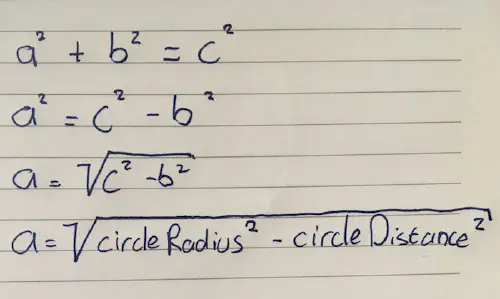 a² + b² = c²
a² = c² - b²
a = √c² - b²
a = √circleRadius² - circleDistance²